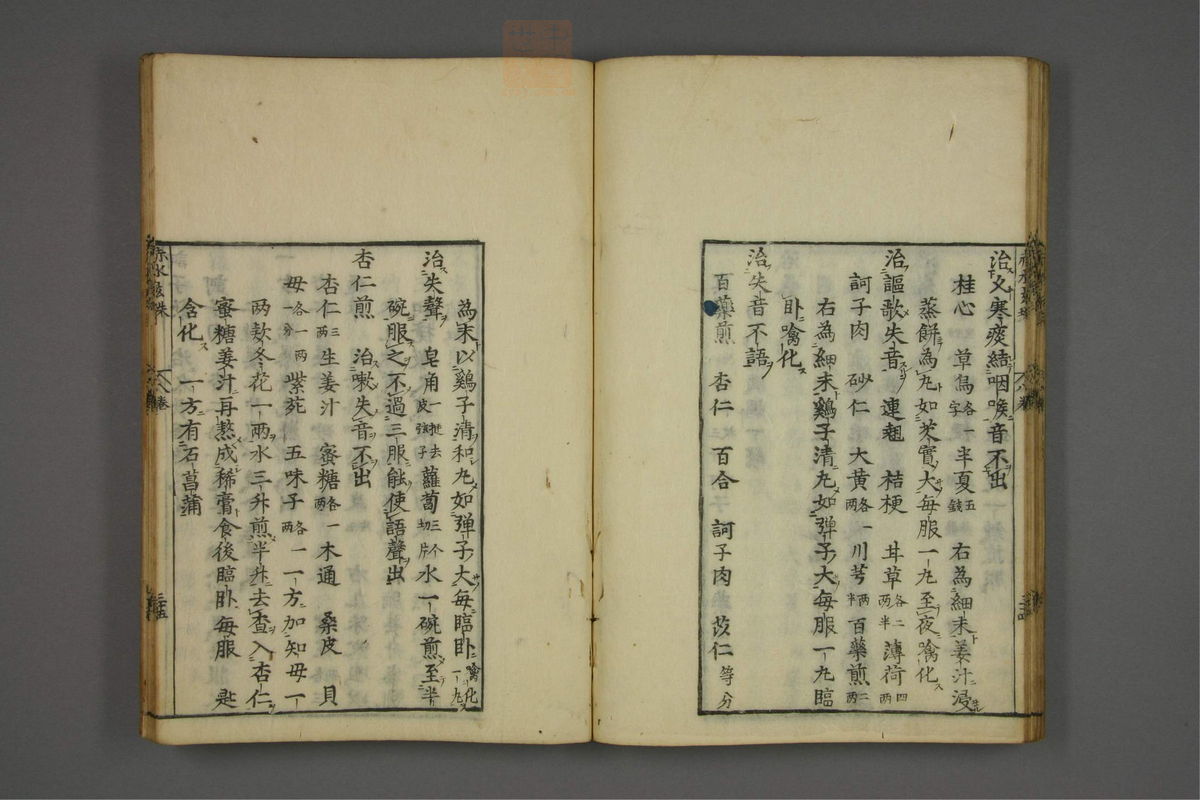 治久寒痰結咽喉音不出
桂心 草烏各一字 半夏五錢 右為細末姜汁浸
蒸餅為丸如芡實大每服一丸至夜噙化
治謳歌失音 連翹 桔梗 甘草各二两半 薄荷四两
訶子肉 砂仁 大黄各一两 川芎两半 百藥煎二两
右為細末鷄子清丸如弹子大每服一丸臨
卧噙化
治失音不語
百藥煎 杏仁 百合 訶子肉 苡仁等分
為末以鷄子清和丸如弹子大每臨卧噙化一丸
治失聲 皂角一挺去皮弦子 蘿蔔三个切片 水一碗煎至半
碗服之不過三服能使語聲出
杏仁煎 治嗽失音不出
杏仁三两 生姜汁 蜜糖各一两 木通 桑皮 貝
母各一两一分 紫苑 五味子各一两 一方加知母一
两款冬花一两水三升煎半升去査入杏仁
蜜糖姜汁再熬成稀膏食後臨卧每服 匙
含化 一方有石菖蒲
赤水玄珠
卷